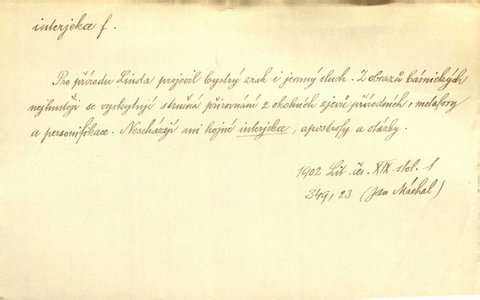 interjekce f.
Pro přírodu Linda projevil bystrý zrak i jemný sluch. Z obrazů básnických
nejhustěji se vyskytují stručná přirovnání z okolních zjevů přírodních, metafory
a personifikace. Nescházejí ani hojné interjekce, apostrofy a otázky.
1902 Lit. čes. XIX. stol. 1
349, 23 (Jan Máchal)